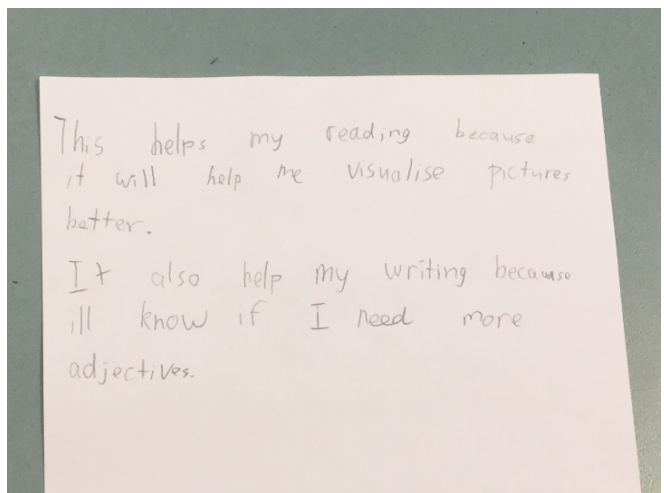 This helps my reading because
it will help me visualise pictures
better.
It also help my writing because
ill know if I need more
adjectives.